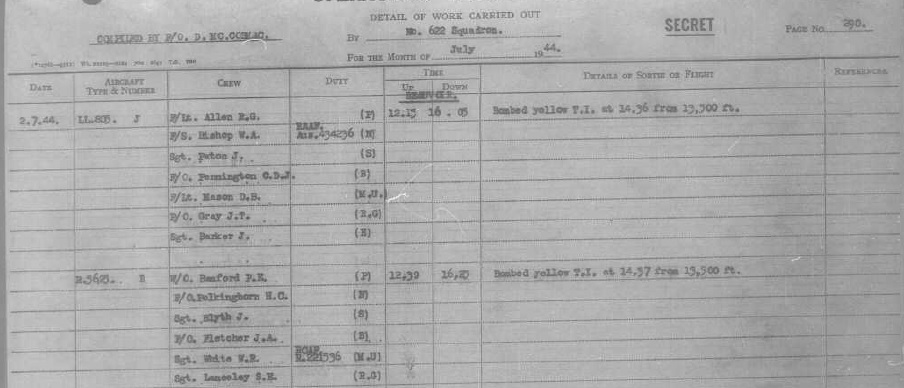 DETAIL OF WORK CARRIED OUT
SECRET
PAGE No. 290.
COMPILED BY F/O. D. MC.CORMAC.
BY No. 622 Squadron.
FOR THE MONTH OF July 1944.
DATE AIRCRAFT TYPE & NUMBER CREW DUTY TIME UP DOWN DETAILS OF SORTIE OR FLIGHT REFERENCES
2.7.44. LL.803. J F/Lt. Allen R.G. (P) 12.15 16.05 Bombed yellow T.I. at 14.36 from 13,500 ft.
F/S. Bishop W.A. RAAF. Aus.434236 (N)
Sgt. Paton J. (S)
F/O. Pennington C.D.J. (B)
F/Lt. Mason D.B. (M.U.)
F/O. Gray J.T. (R.G)
Sgt. Barker J. (E)
B F/O. Banford P.E. (P) 12.39 Bombed yellow T.I. at 14.37 from 13,500 ft.
F/O. Pelkinghorn H.C. (N)
Sgt. Blyth J. (S)
F/O. Fletcher J.A. (B)
Sgt. White W.R. RCAF R.221536 (M.U)
Sgt. (R.G)